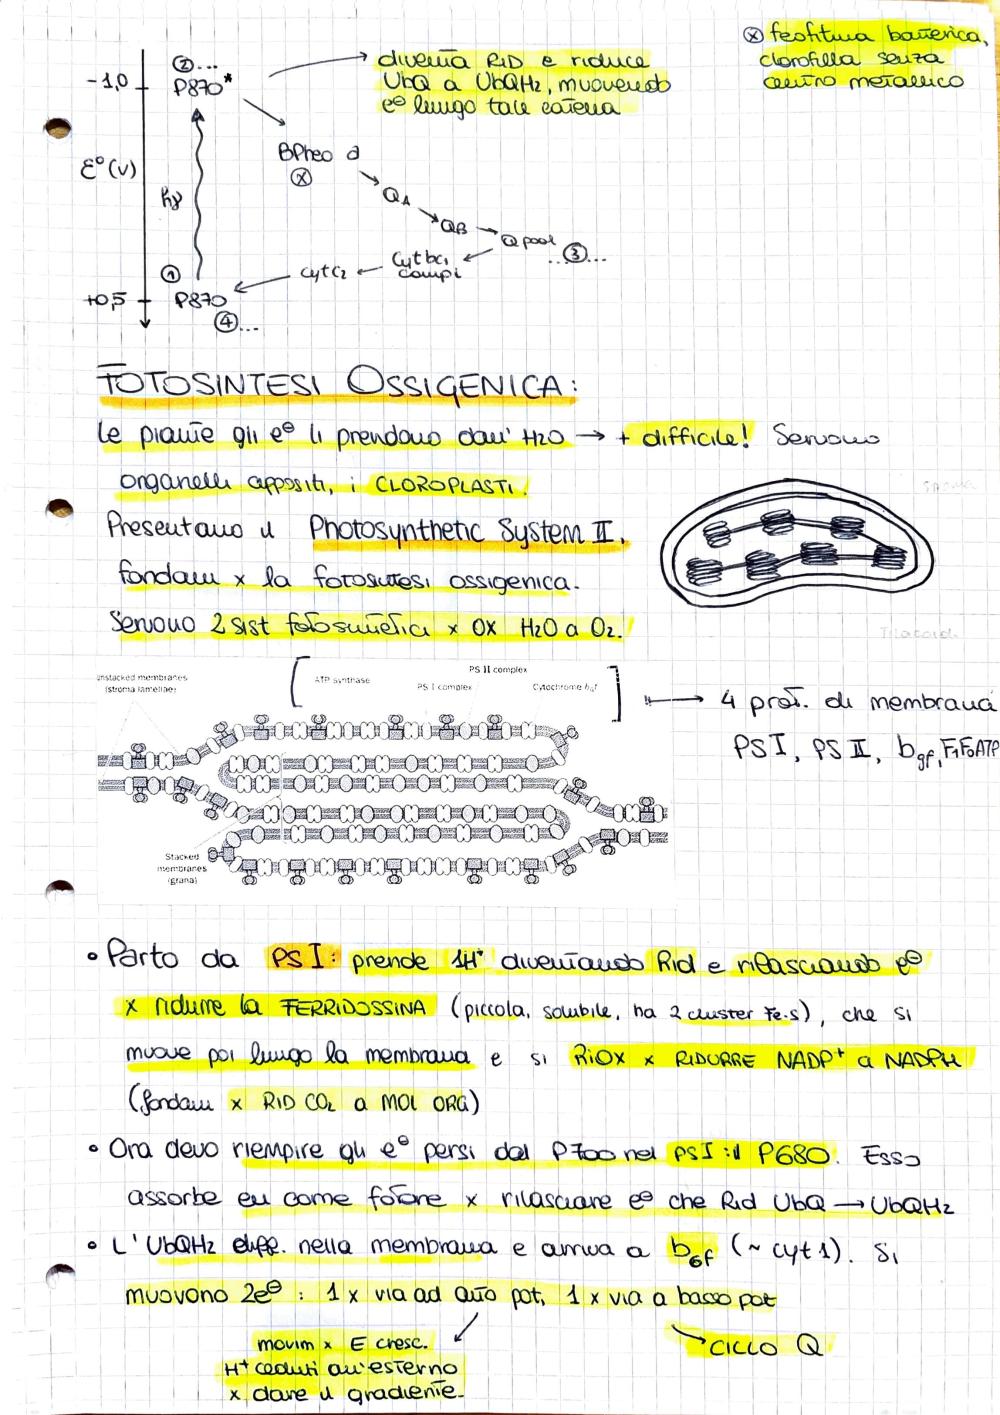 ⓧ feofitina batterica,
clorofilla senza
centro metallico
②...
-1,0 P870*
→ diventa RID e riduce
UbQ a UbQH2, muovendo
e⊖ lungo tale catena
BPheo a
ⓧ
ε°(v)
hγ
QA
QB
Q pool ...③...
Cyt bc1
compl
cyt c2
①
+0,5 P870
④...
FOTOSINTESI OSSIGENICA:
Le piante gli e⊖ li prendono dall' H2O → + difficile! Servono
organelli appositi, i CLOROPLASTI.
Presentano il Photosynthetic System II,
fondam x la fotosintesi ossigenica.
Servono 2 sist fotosintetici x OX H2O a O2.
Stroma
Tilacoidi
unstacked membranes
(stroma lamellae)
ATP synthase
PS I complex
PS II complex
Cytochrome b6f
Stacked
membranes
(grana)
→ 4 prot. di membrana
PSI, PSII, b6f, F1F0ATP
• Parto da PSI: prende 1H+ diventando Rid e rilasciando e⊖
x ridurre la FERRIDOSSINA (piccola, solubile, ha 2 cluster Fe-S), che si
muove poi lungo la membrana e si RiOX x RIDURRE NADP+ a NADPH
(fondam x RID CO2 a MOL ORG)
• Ora devo riempire gli e⊖ persi dal P700 nel PSI: il P680. Esso
assorbe en come fotone x rilasciare e⊖ che Rid UbQ → UbQH2
• L'UbQH2 diff. nella membrana e arriva a b6f (~ cyt 1). Si
muovono 2e⊖ : 1 x via ad alto pot, 1 x via a basso pot
movim x E cresc.
H+ ceduti all'esterno
x dare il gradiente.
CICLO Q